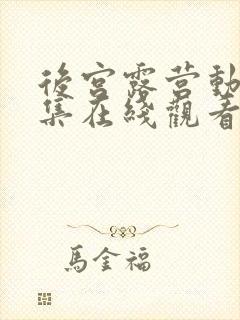 後宮露营動
集在綫觀看
馬金福